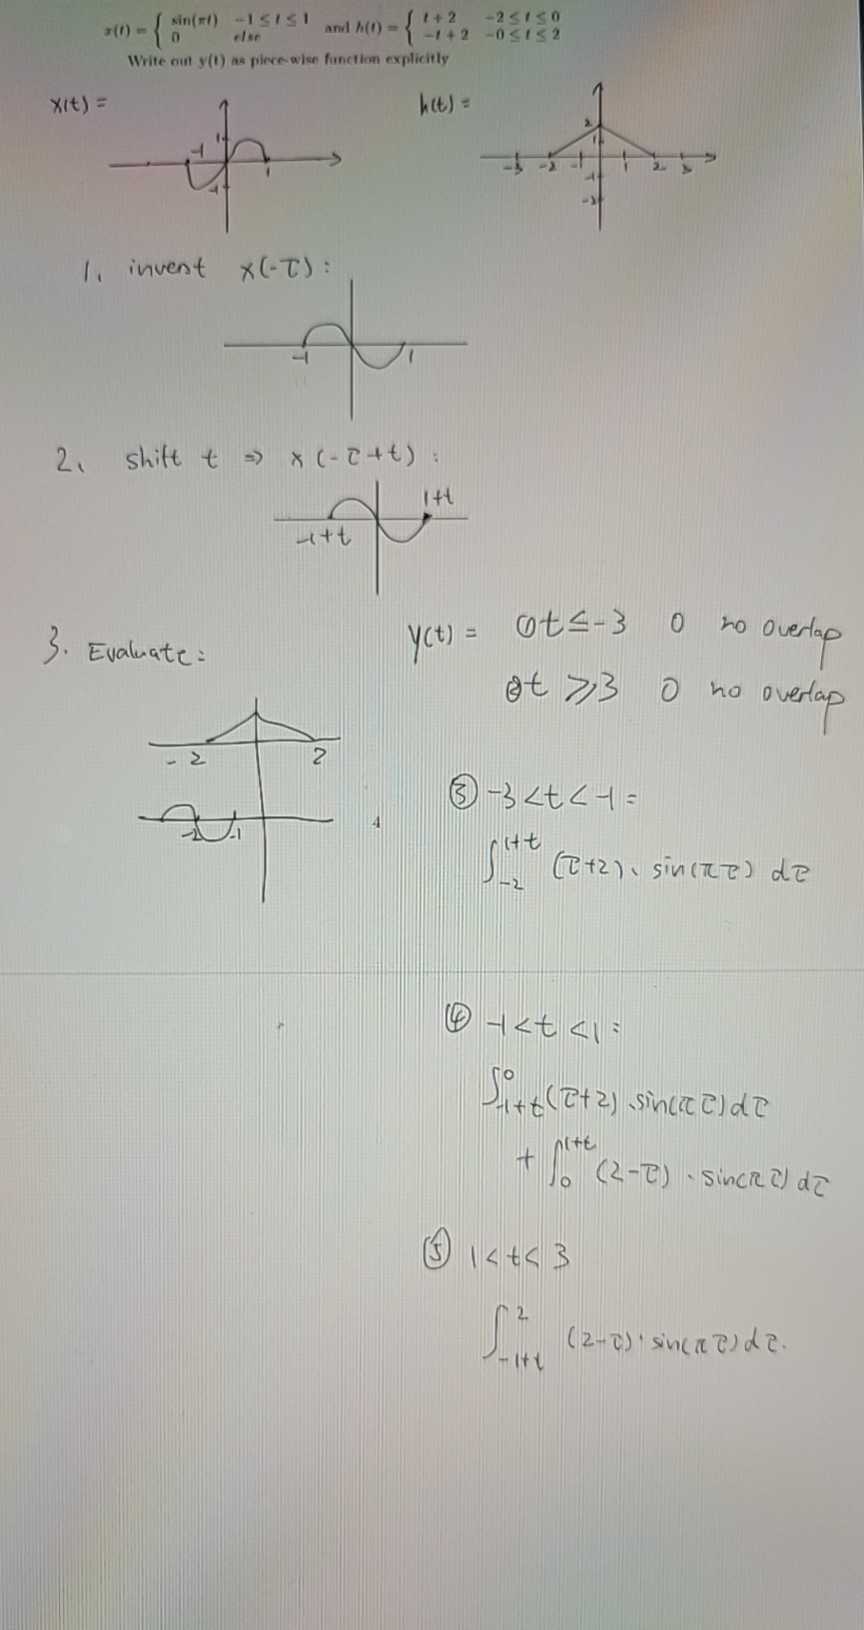 x(t) = { sin(πt) -1 ≤ t ≤ 1
0 else
and h(t) = { t + 2 -2 ≤ t ≤ 0
-t + 2 -0 ≤ t ≤ 2
Write out y(t) as piece-wise function explicitly
x(t) =
h(t) =
1
-1
1
-1
2
1
-3 -2 -1 1 2 3
-1
-2
1. invert x(-τ) :
-1 1
2. shift t ⇒ x(-τ+t) :
1+t
-1+t
3. Evaluate:
y(t) = ① t ≤ -3 0 no overlap
② t ≥ 3 0 no overlap
-2 2
-2 -1
③ -3 < t < -1 =
∫_{-2}^{1+t} (τ+2) · sin(πτ) dτ
④ -1 < t < 1 :
∫_{-1+t}^{0} (τ+2) · sin(πτ) dτ
+ ∫_{0}^{1+t} (2-τ) · sin(πτ) dτ
⑤ 1 < t < 3
∫_{-1+t}^{2} (2-τ) · sin(πτ) dτ.